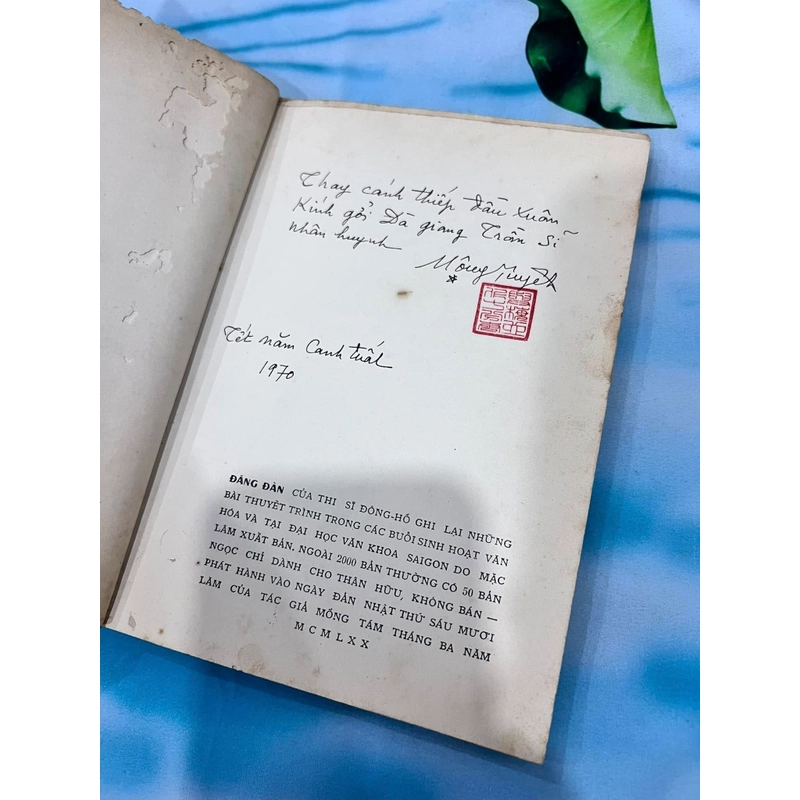 Thay cánh thiếp đầu Xuân
Kính gởi Dã giang Trần Sĩ
nhân huynh
Mộng Tuyết
Tết năm Canh tuất
1970
ĐĂNG ĐÀN CỦA THI SĨ ĐÔNG-HỒ GHI LẠI NHỮNG
BÀI THUYẾT TRÌNH TRONG CÁC BUỔI SINH HOẠT VĂN
HÓA VÀ TẠI ĐẠI HỌC VĂN KHOA SAIGON DO MẶC
LÂM XUẤT BẢN, NGOÀI 2000 BẢN THƯỜNG CÓ 50 BẢN
NGỌC CHỈ DÀNH CHO THÂN HỮU, KHÔNG BÁN —
PHÁT HÀNH VÀO NGÀY ĐẢN NHẬT THỨ SÁU MƯƠI
LĂM CỦA TÁC GIẢ MỒNG TÁM THÁNG BA NĂM
MCMLXX